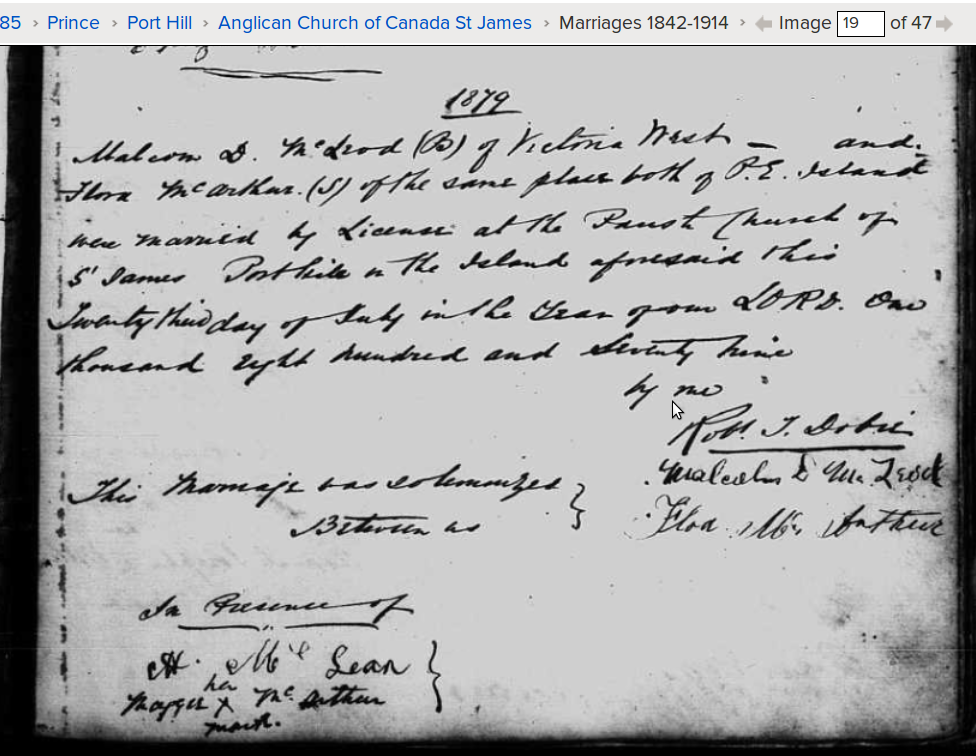 85 › Prince › Port Hill › Anglican Church of Canada St James › Marriages 1842-1914 › Image 19 of 47
1879
Malcom D. McLeod (B) of Victoria West — and
Flora McArthur (S) of the same place both of P.E. Island
were married by License at the Parish Church of
St James Porthill in the Island aforesaid this
Twenty third day of July in the Year of our LORD. One
thousand Eight hundred and Seventy nine
by me
Robt. T. Dobie
This Marriage was solemnized
Between us
Malcolm D McLeod
Floa Mc Arthur
In Presence of
A. McLean
her
Magget X McArthur
mark.